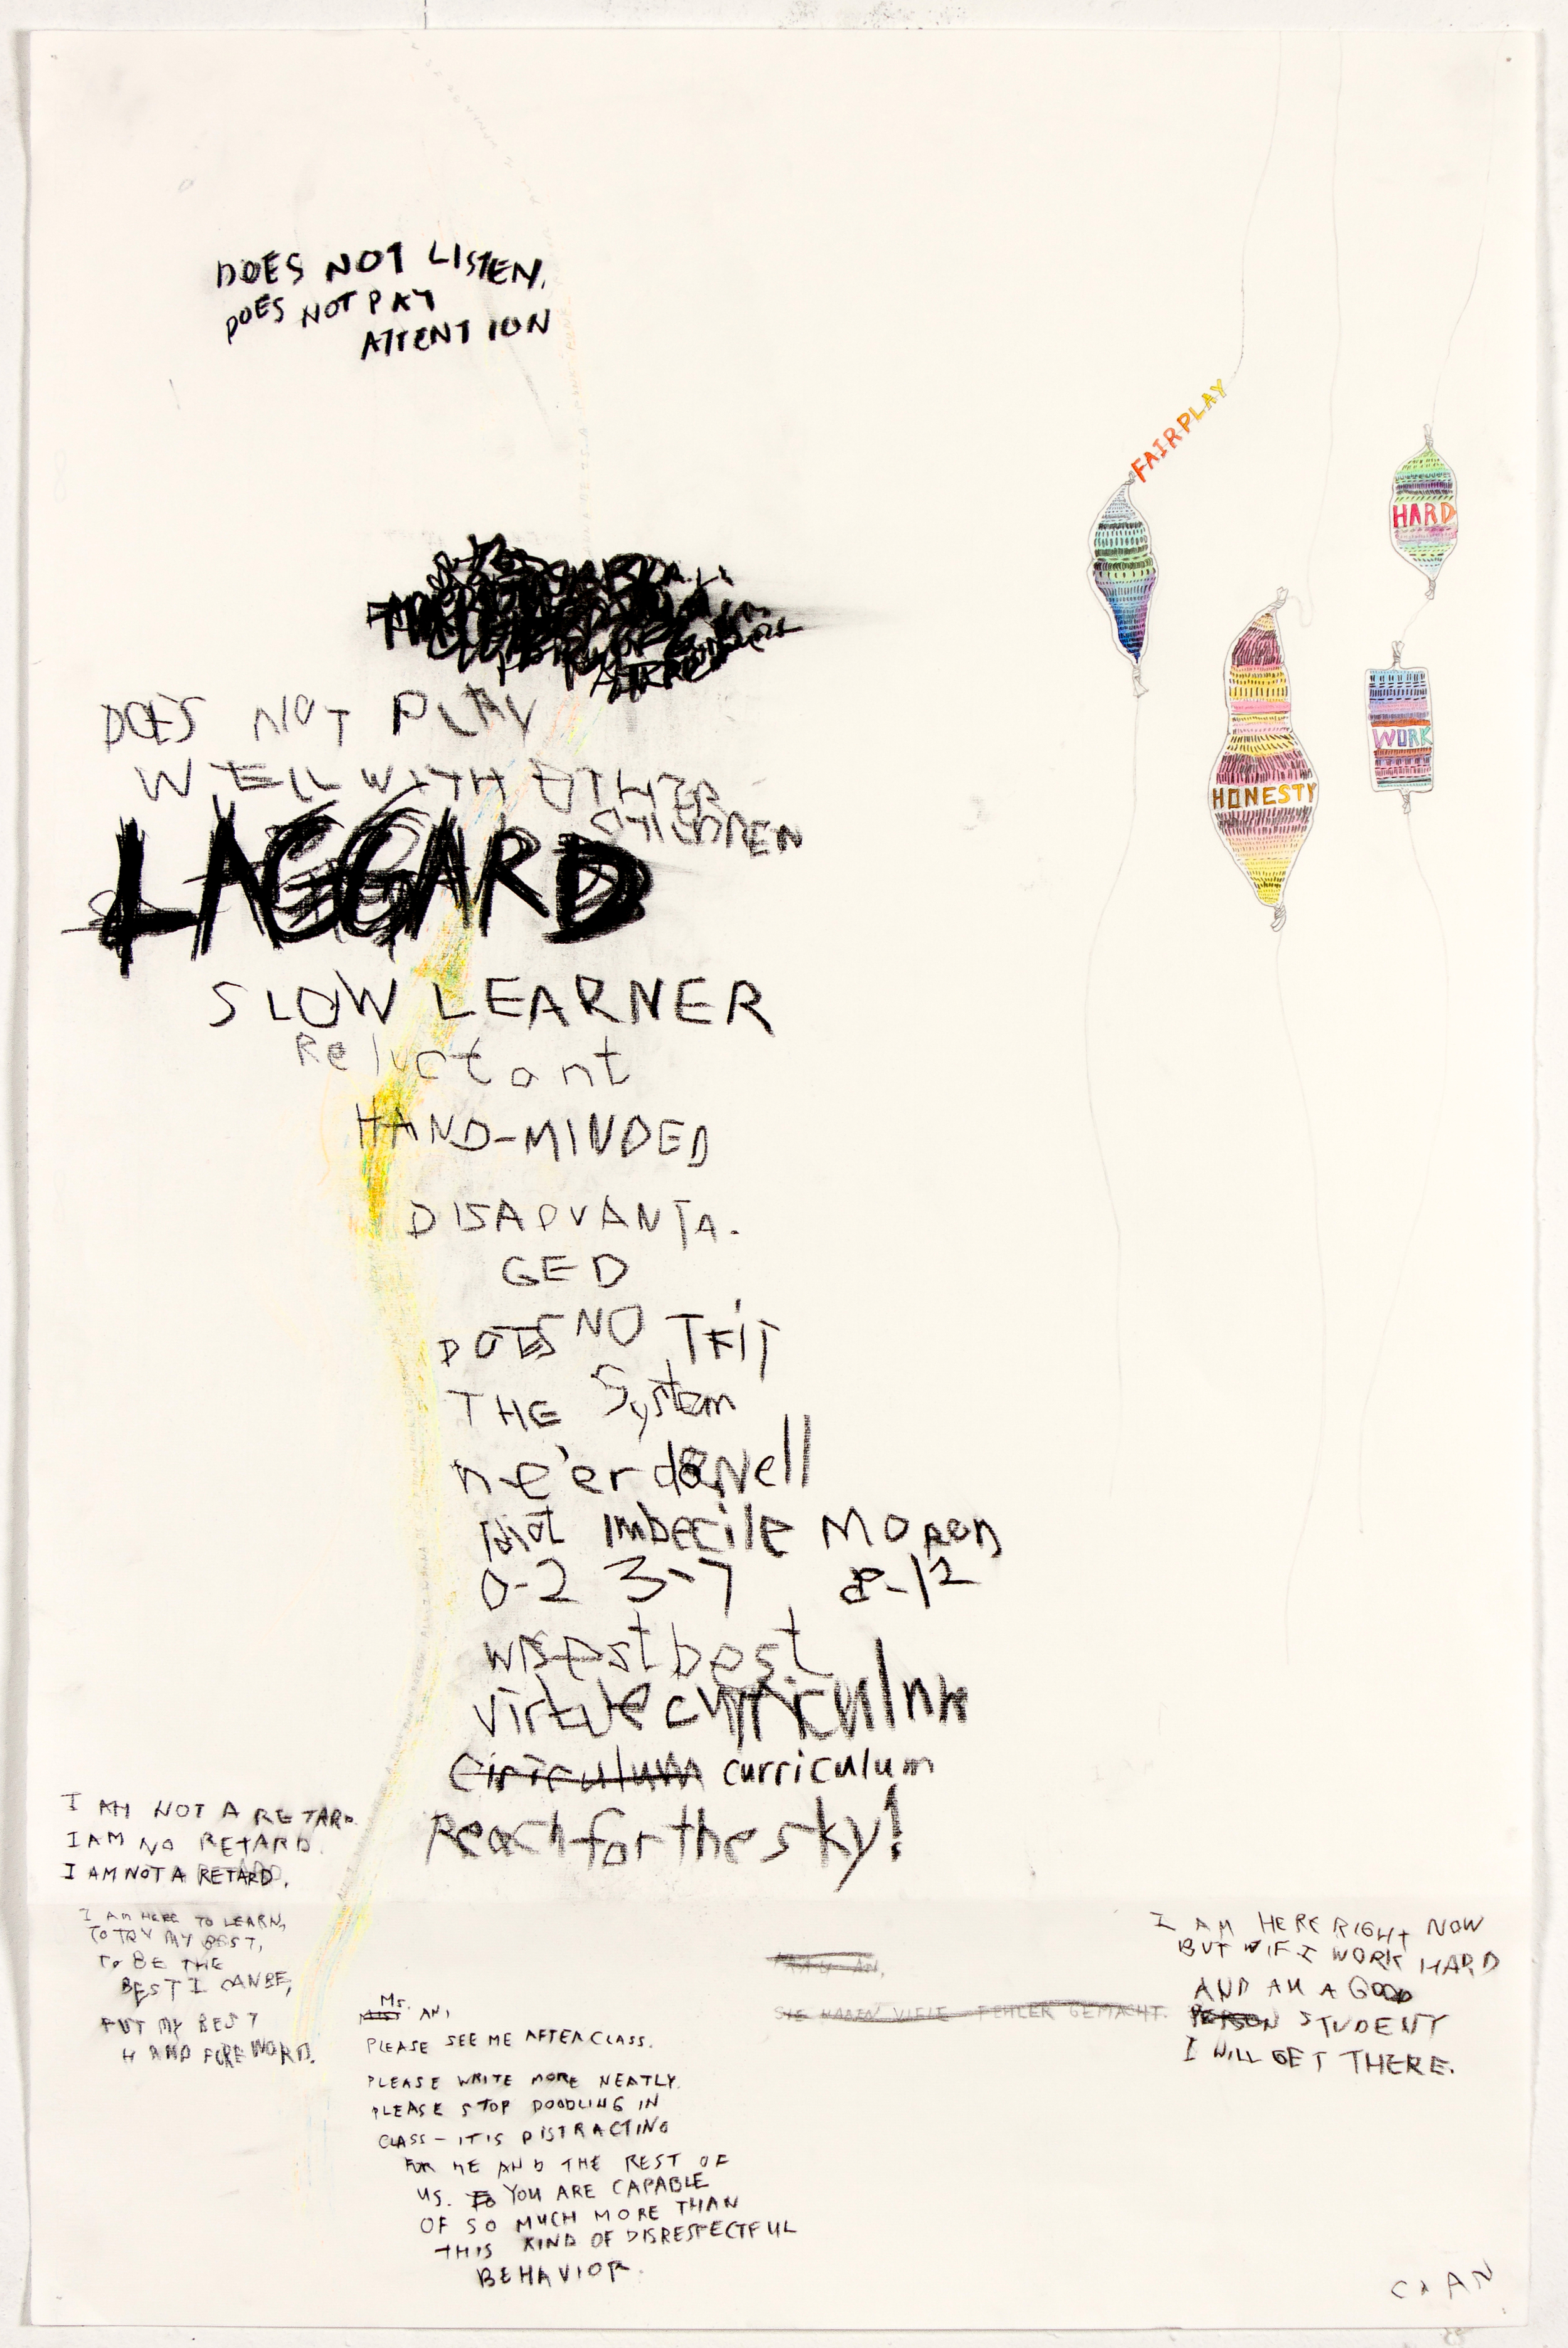 DOES NOT LISTEN.
DOES NOT PAY
ATTENTION
FAIRPLAY
HARD
WORK
HONESTY
DOES NOT PLAY
WELL WITH OTHER
CHILDREN
LAGGARD
SLOW LEARNER
Reluctant
HAND-MINDED
DISADVANTA-
GED
DOES NO TFIT
THE System
ne'er do well
idiot imbecile MORON
0-2 3-7 8-12
wisest best
virtue curriculum
Ciriculum curriculum
Reach for the sky!
I AM NOT A RETARD.
I AM NO RETARD.
I AM NOT A RETARD.
I AM HERE TO LEARN,
TO TRY MY BEST,
TO BE THE
BEST I CAN BE,
PUT MY BEST
HAND FOREWORD.
Ms. AN,
PLEASE SEE ME AFTER CLASS.
PLEASE WRITE MORE NEATLY.
PLEASE STOP DOODLING IN
CLASS - IT IS DISTRACTING
FOR ME AND THE REST OF
US. YOU ARE CAPABLE
OF SO MUCH MORE THAN
THIS KIND OF DISRESPECTFUL
BEHAVIOR.
FRAU AN,
SIE HABEN VIELE FEHLER GEMACHT.
I AM HERE RIGHT NOW
BUT IF I WORK HARD
AND AM A GOOD
PERSON STUDENT
I WILL GET THERE.